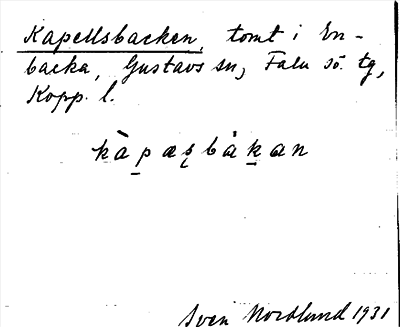 Kapellsbacken, tomt i En-
backa, Gustavs sn, Falu sö. tg,
Kopp. l.
kàpæʂbàkan
Sven Nordlund 1931